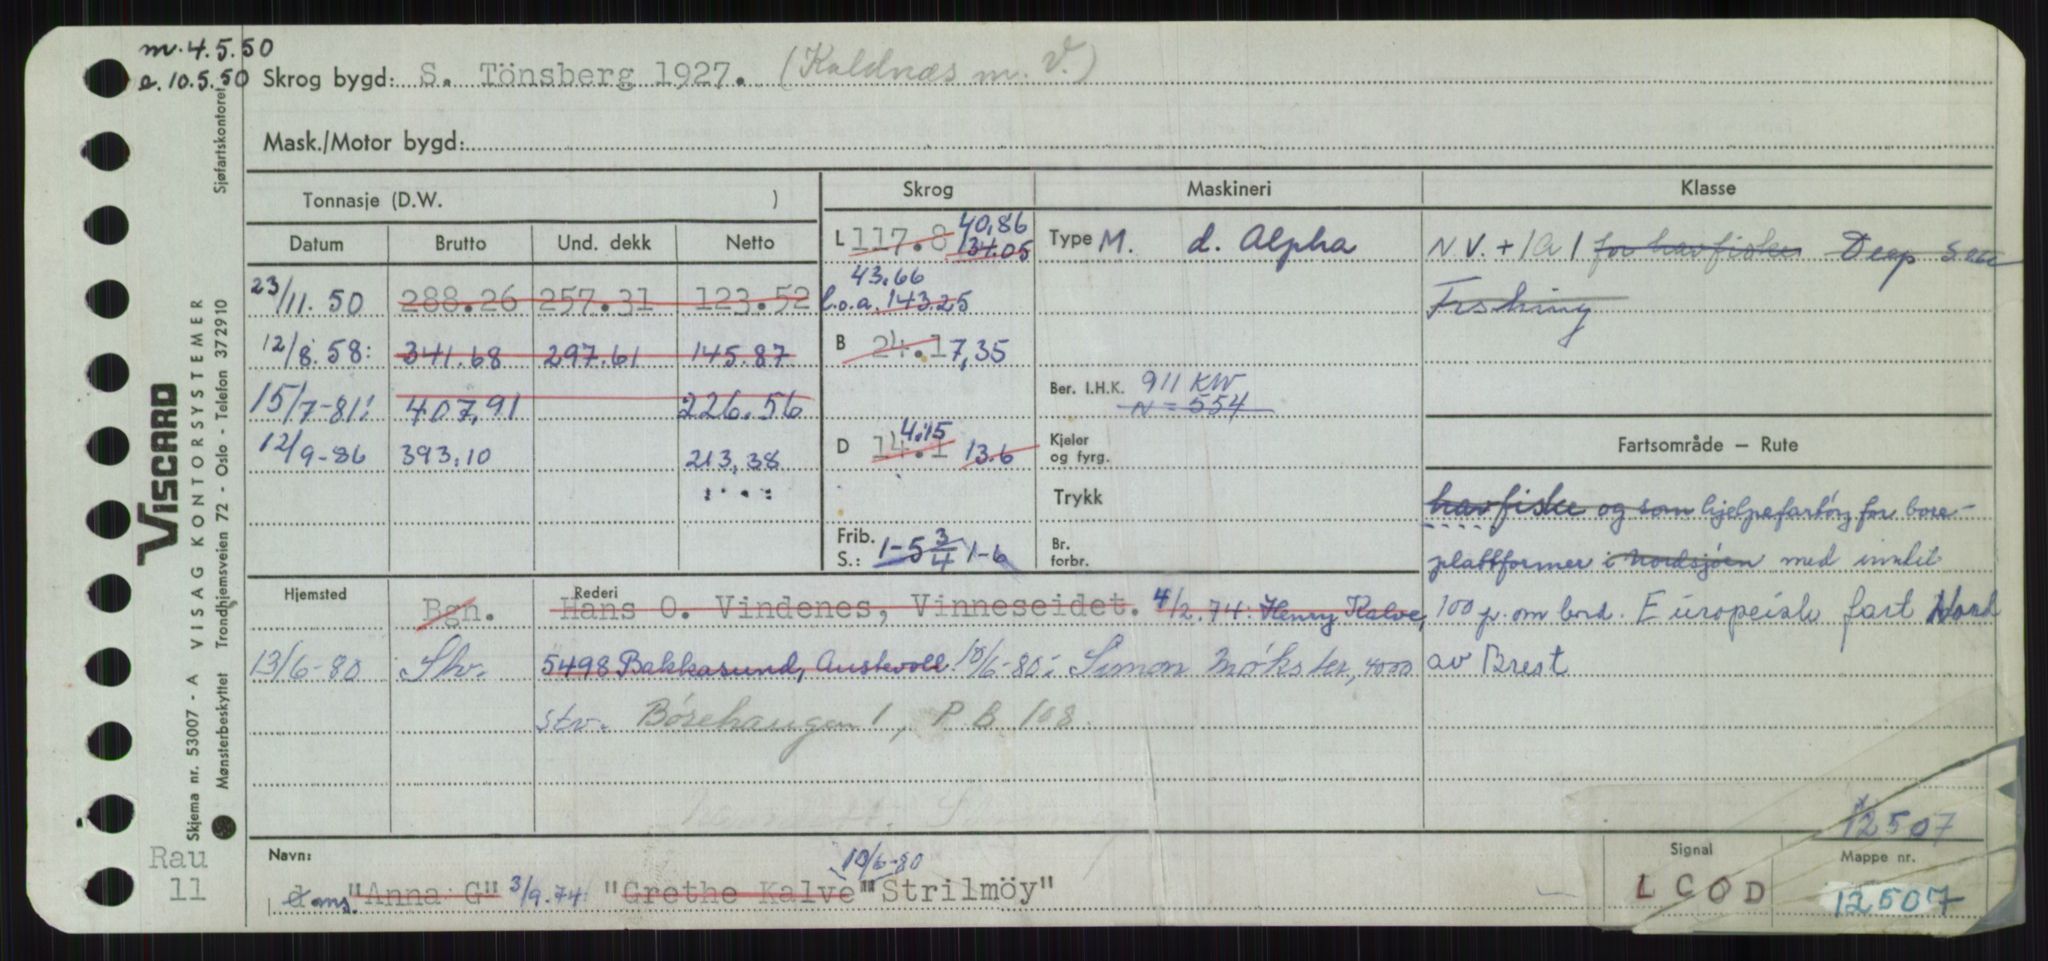 m. 4.5.50
e. 10.5.50 Skrog bygd: S. Tönsberg 1927. (Kaldnæs m. V.)
Mask./Motor bygd:
Tonnasje (D.W. )
Datum Brutto Und. dekk Netto
23/11. 50 288.26 257.31 123.52
12/8. 58: 341.68 297.61 145.87
15/7-81: 407,91 226.56
12/9-86 393,10 213,38
Skrog
L 117.8 40,86
134.05
43.66
l.o.a. 143.25
B 24.1 7,35
4,15
D 14.1 13.6
Frib.
S.: 1-5 3/4 1-6
Maskineri
Type M. d. Alpha
Ber. I.H.K. 911 KW
N = 554
Kjeler
og fyrg.
Trykk
Br.
forbr.
Klasse
N V. + 1A1 for havfiske Deep Sea
Fishing
Fartsområde – Rute
havfiske og som hjelpefartöy for bore-
plattformer i Nordsjöen med inntil
100 p. om bord. Europeisk fart Nord
av Brest
Hjemsted Rederi
Bgn. Hans O. Vindenes, Vinneseidet. 4/2.74. Henry Kalve,
13/6-80 Stv. 5498 Bakkasund, Austevoll 10/6-80: Simon Mökster, 4000
Stv. Börehaugen 1, P.B. 108
Navn:
10/6-80
ms. "Anna G" 3/9.74: "Grethe Kalve" "Strilmöy"
12507
Signal Mappe nr.
L C O D 12507
Sjøfartskontoret
VISCARD
VISAG KONTORSYSTEMER
Skjema nr. 53007 - A
Mønsterbeskyttet Trondhjemsveien 72 - Oslo - Telefon 372910
Rau
11